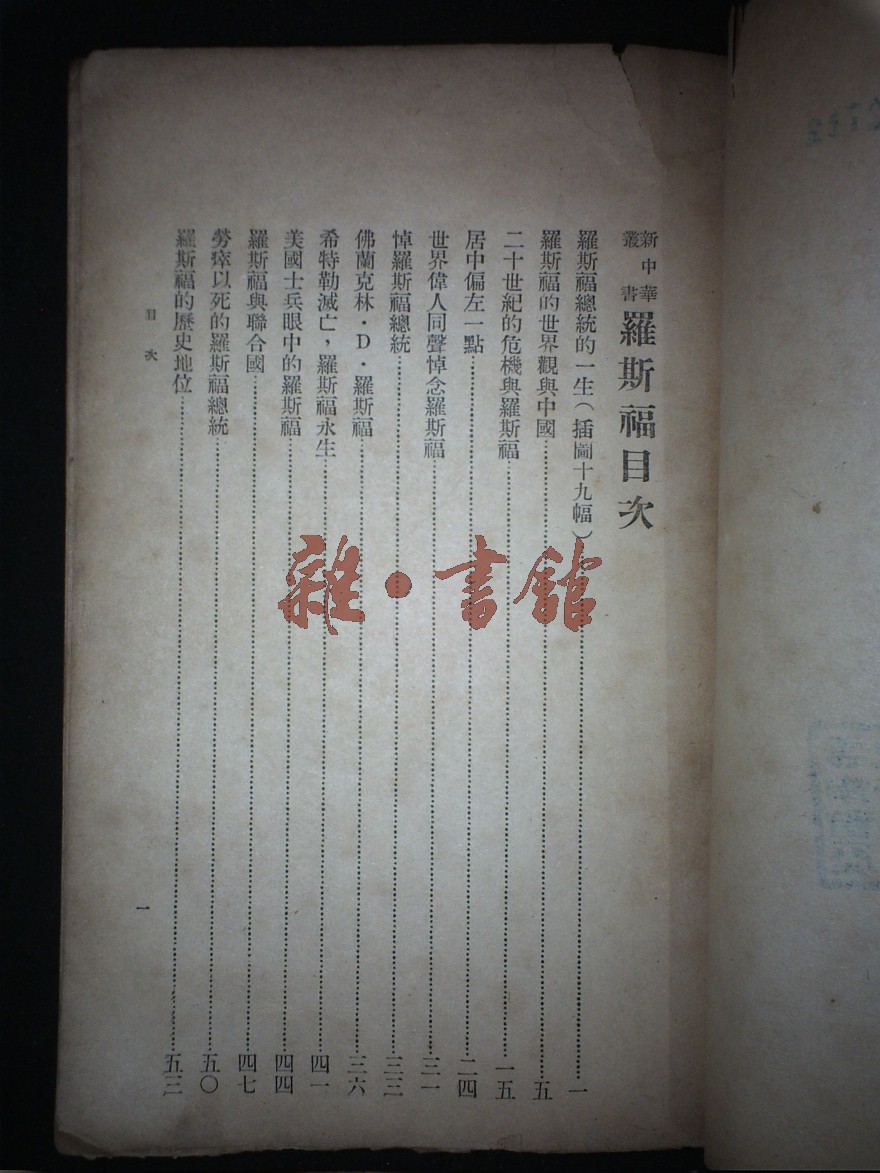 新中華叢書 羅斯福目次
羅斯福總統的一生(插圖十九幅)……一
羅斯福的世界觀與中國……五
二十世紀的危機與羅斯福……一五
居中偏左一點……二四
世界偉人同聲悼念羅斯福……三一
悼羅斯福總統……三三
佛蘭克林·D·羅斯福……三六
希特勒滅亡,羅斯福永生……四一
美國士兵眼中的羅斯福……四四
羅斯福與聯合國……四七
勞瘁以死的羅斯福總統……五〇
羅斯福的歷史地位……五三
目次
一
雜·書館